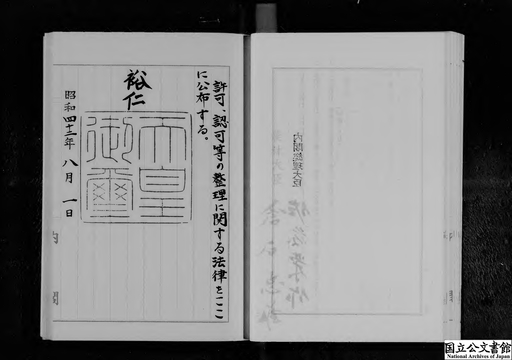 許可、認可等の整理に関する法律をここ
に公布する。
裕仁
天皇
御璽
昭和四十三年 八月 一日
内閣
内閣総理大臣
国立公文書館
National Archives of Japan